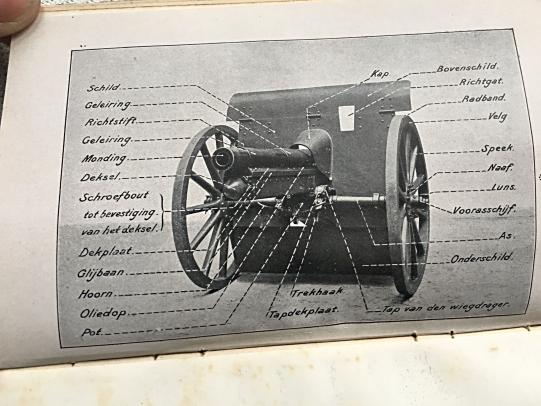 Schild
Geleiring
Richtstift
Geleiring
Monding
Deksel
Schroefbout
tot bevestiging
van het deksel.
Dekplaat
Glijbaan
Hoorn
Oliedop
Pot.
Kap
Bovenschild.
Richtgat.
Radband.
Velg
Speek.
Naaf.
Luns.
Voorasschijf.
As.
Onderschild.
Trekhaak
Tapdekplaat.
Tap van den wiegdrager.